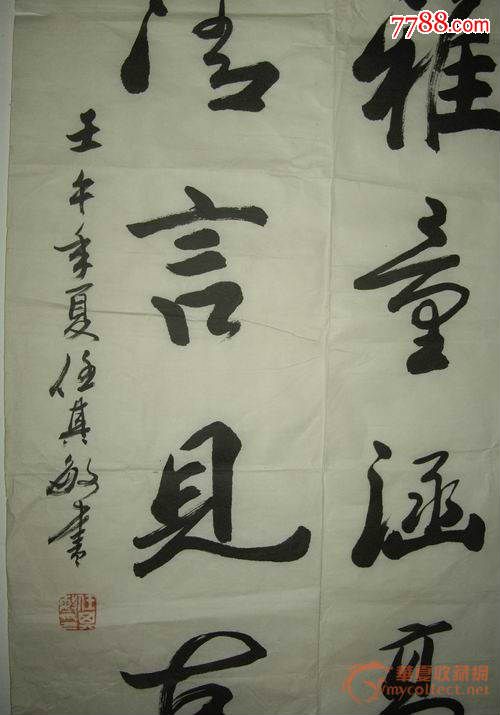 7788.com
雅量涵高
清言見古
壬午年夏任其敏書
华夏收藏网
mycollect.net